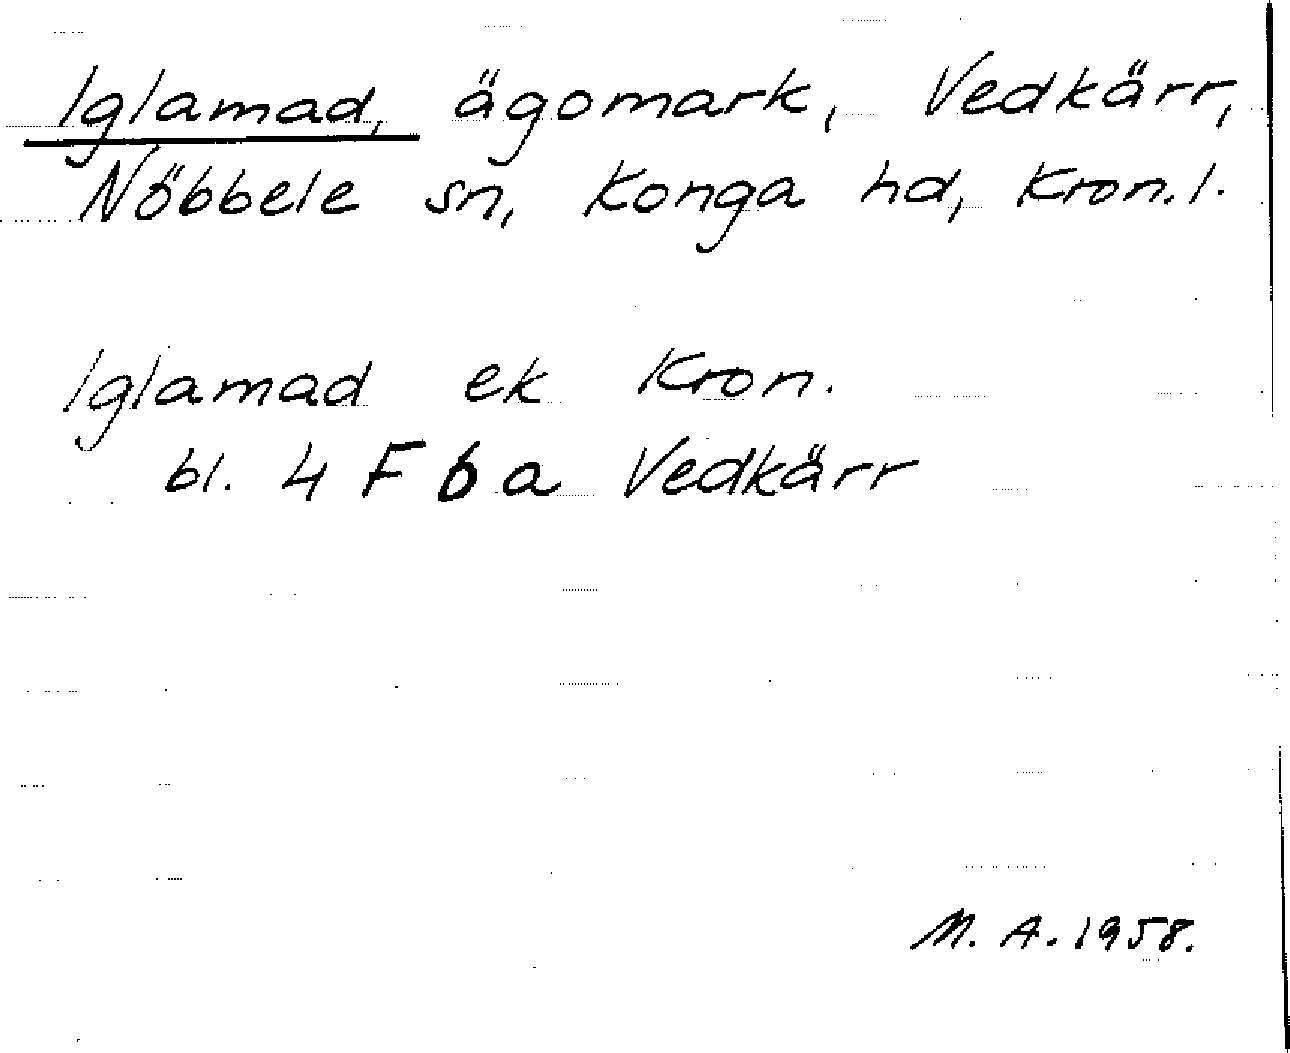 Iglamad, ägomark, Vedkärr,
Nöbbele sn, Konga hd, Kron.l.
Iglamad ek Kron.
bl. 4 F b a Vedkärr
M. A. 1958.